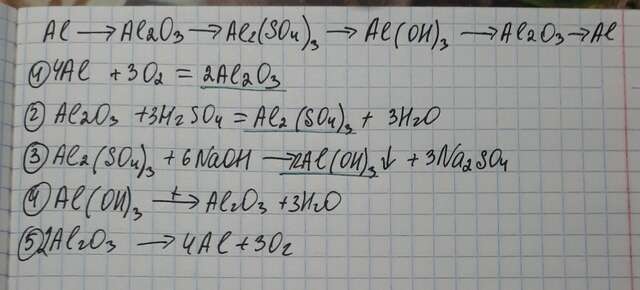 Al → Al2O3 → Al2(SO4)3 → Al(OH)3 → Al2O3 → Al
① 4Al + 3O2 = 2Al2O3
② Al2O3 + 3H2SO4 = Al2(SO4)3 + 3H2O
③ Al2(SO4)3 + 6NaOH → 2Al(OH)3↓ + 3Na2SO4
④ Al(OH)3 t→ Al2O3 + 3H2O
⑤ 2Al2O3 → 4Al + 3O2